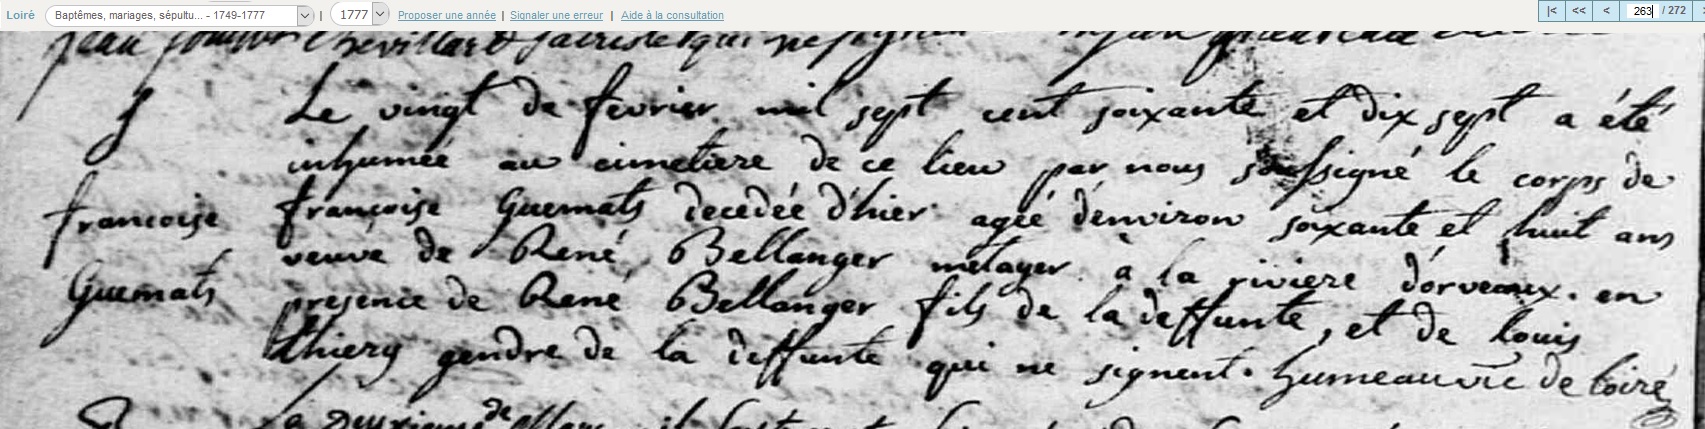 Loiré Baptêmes, mariages, sépultu... - 1749-1777 | 1777 Proposer une année | Signaler une erreur | Aide à la consultation |< << < 263 / 272
jean Chevillard sacriste qui ne
Le vingt de fevrier mil sept cent soixante et dix sept a été
inhumée au cimetiere de ce lieu par nous soussigné le corps de
francoise françoise Guemats decedée d'hier ageé d'environ soixante et huit ans
veuve de René Bellanger metayer à la riviere d'orveaux. en
Guemats presence de René Bellanger fils de la deffunte, et de louis
thiery gendre de la deffunte qui ne signent. humeau vic de loiré